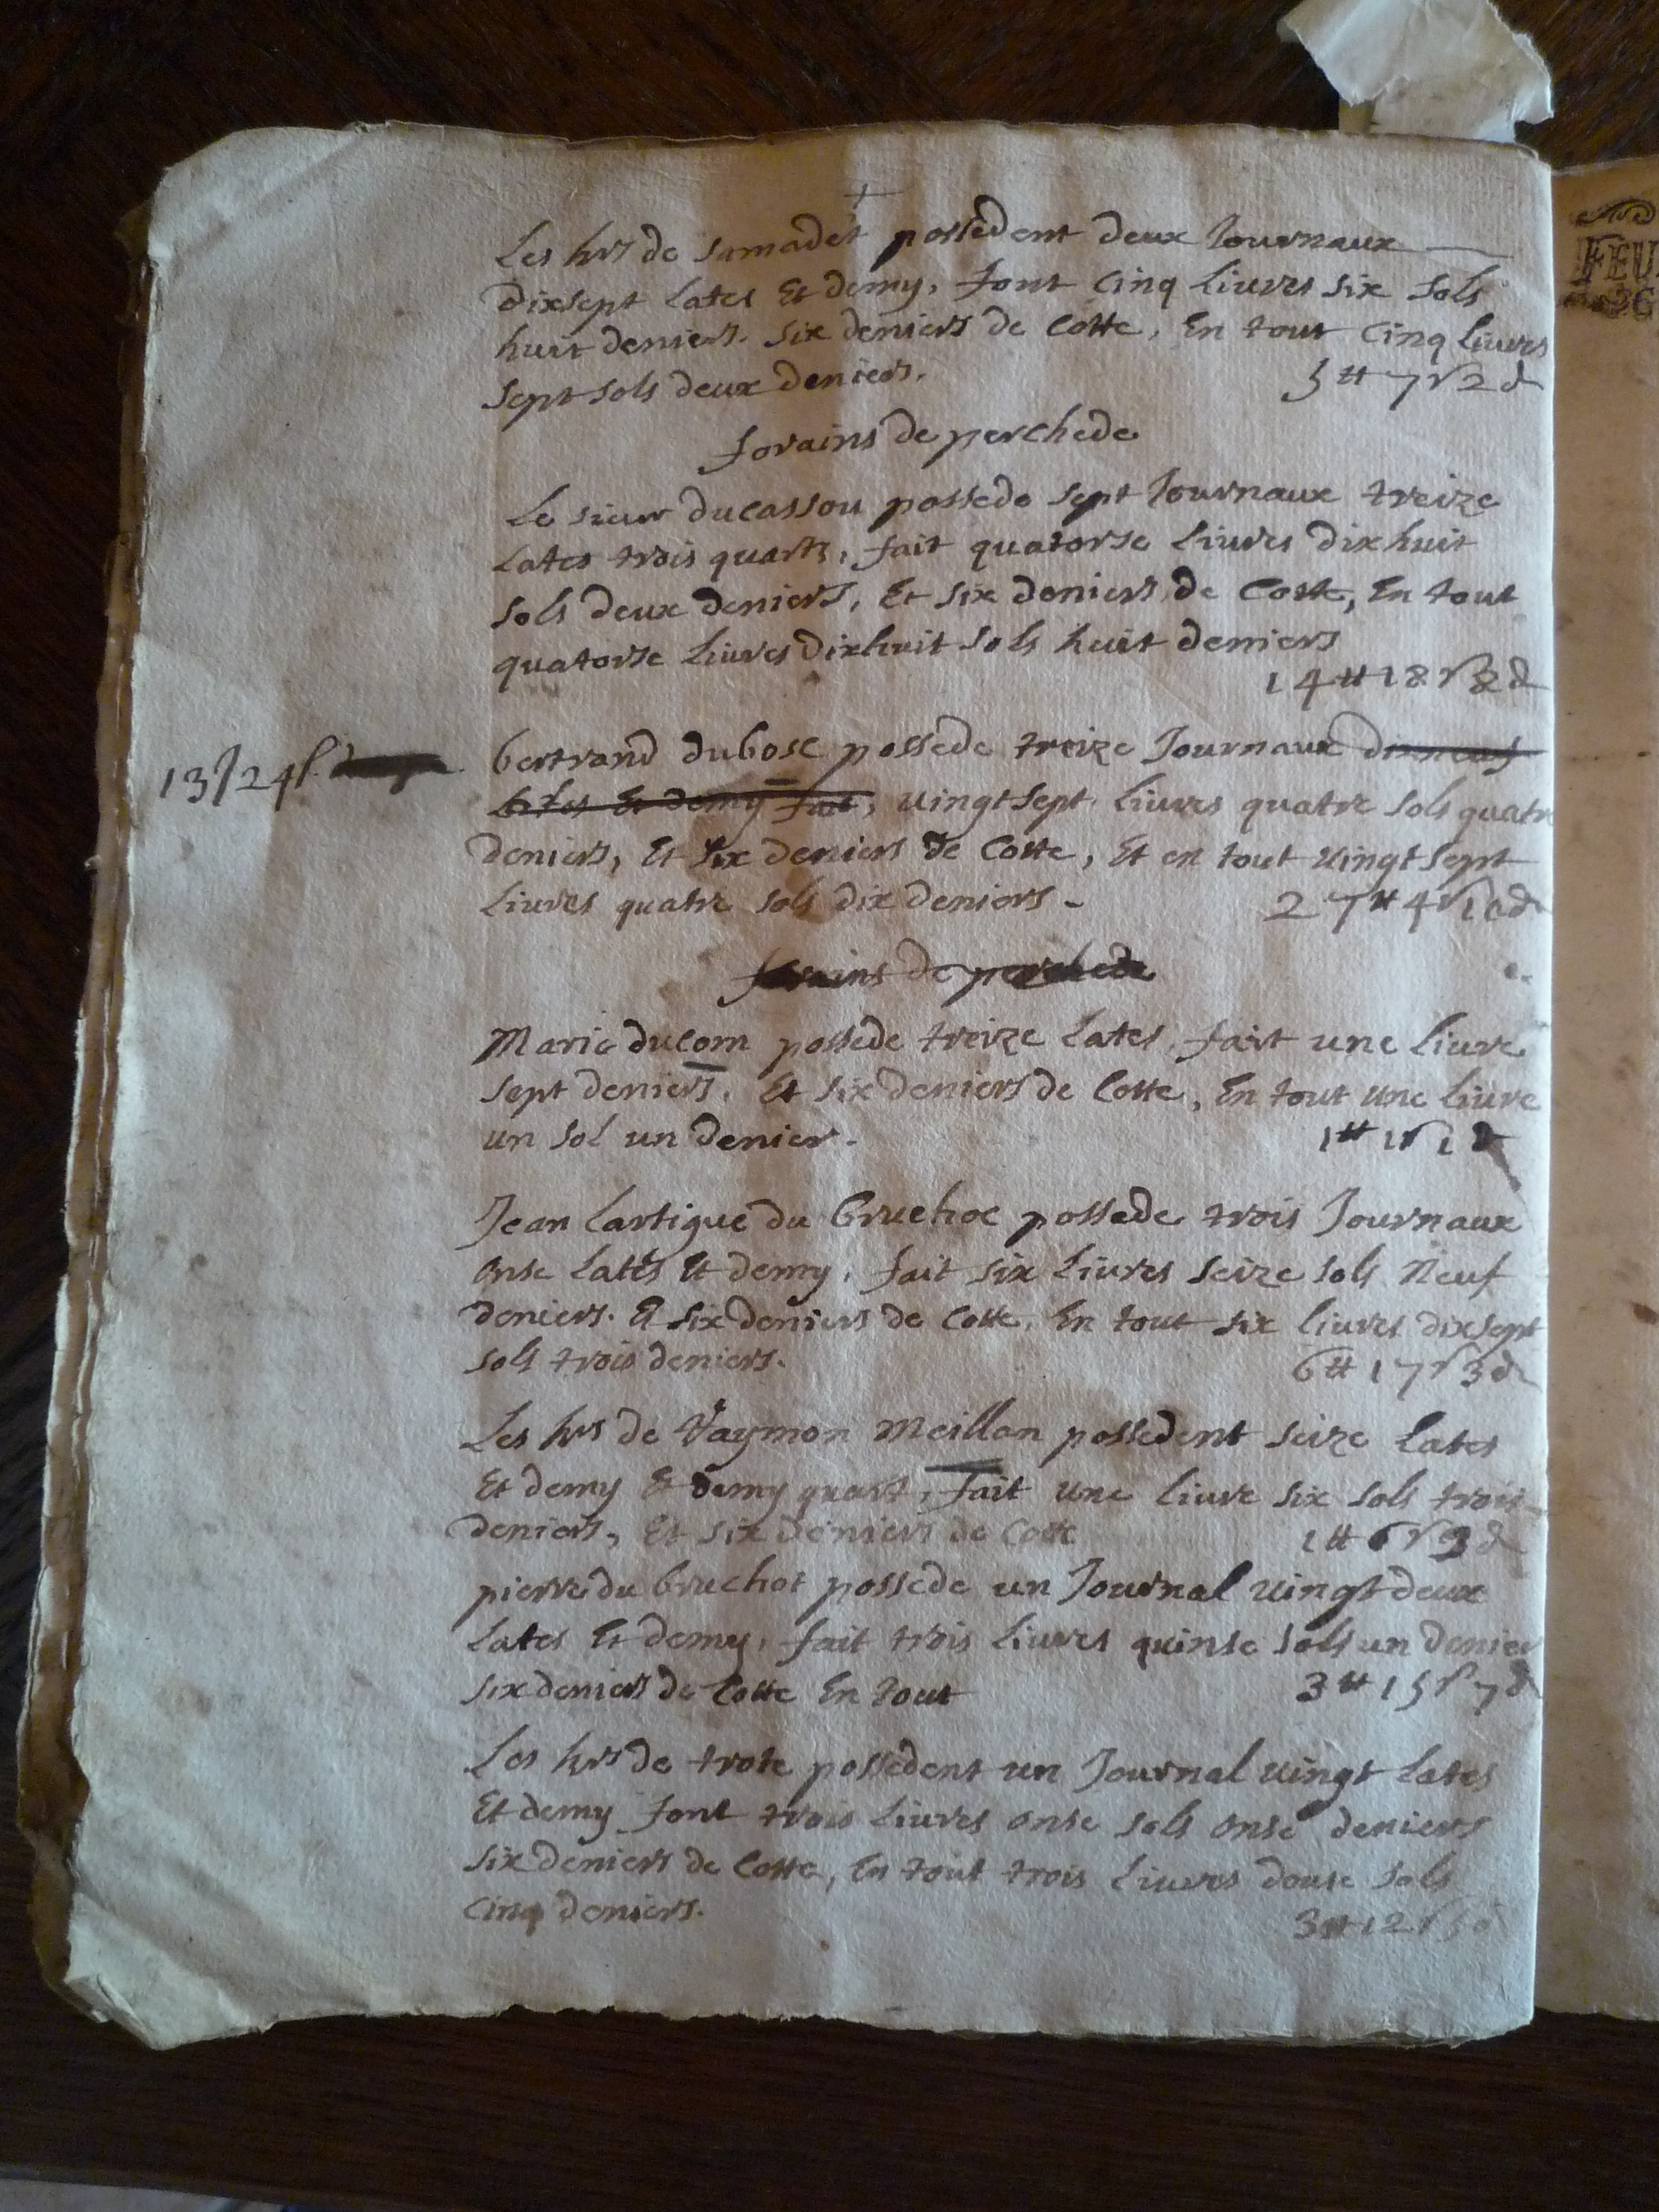 +
Les hrs de samadet possedent deux Journaux
dixsept lates Et demy, font cinq liures six sols
huit deniers. six deniers de Cotte, En tout cinq liures
sept sols deux deniers. 5tt 7s 2d
forains de perchede
Le sieur ducassou possede sept Journaux treize
lates trois quarts, fait quatorse liures dixhuit
sols deux deniers, Et six deniers de Cotte, En tout
quatorse liures dixhuit sols huit deniers
14tt 18s 8d
13J 24l
bertrand dubosc possede treize Journaux dixneuf
lates Et demy fait, uingtsept liures quatre sols quatre
deniers, Et six deniers de Cotte, Et en tout uingtsept
liures quatre sols dix deniers - 27tt 4s 10d
forains de perchede
Marie ducom possede treize lates, fait une liure
sept deniers, Et six deniers de Cotte, En tout une liure
un sol un denier. 1tt 1s 1d
Jean Lartigue du bruchoc possede trois Journaux
onse lates Et demy, fait six liures seize sols neuf
deniers. Et six deniers de Cotte, En tout six liures dixsept
sols trois deniers. 6tt 17s 3d
Les hrs de Raymon Meillan possedent seize lates
Et demy Et demy quart, fait une liure six sols trois
deniers, Et six deniers de Cotte 1tt 6s 9d
pierre du bruchot possede un Journal uingt deux
lates Et demy, fait trois liures quinse sols un denier
six deniers de Cotte En tout 3tt 15s 7d
Les hrs de trote possedent un Journal uingt lates
Et demy font trois liures onse sols onse deniers
six deniers de Cotte, En tout trois liures douse sols
cinq deniers. 3tt 12s 5d
FEU